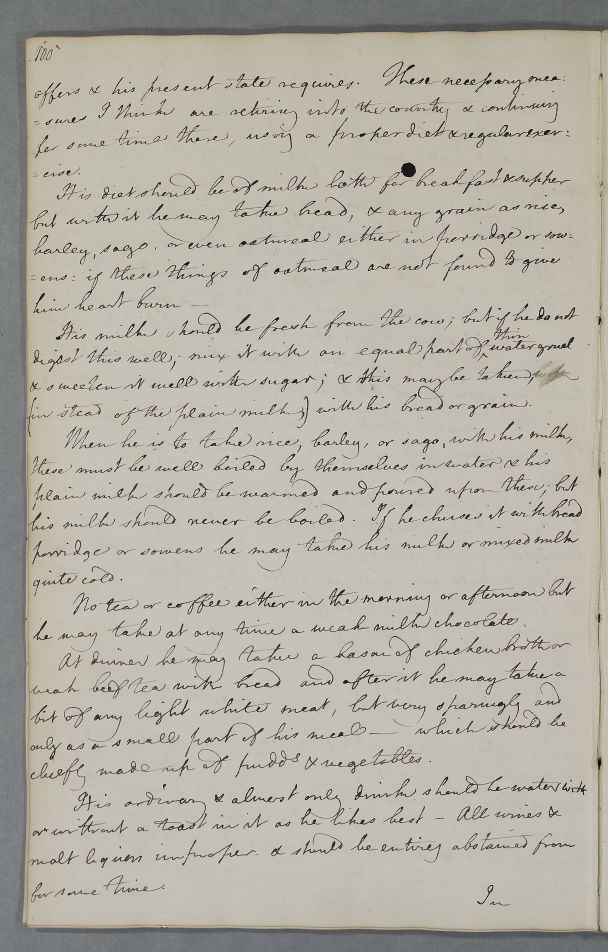 100
offers & his present state requires. These necessary mea:
=sures I think are retiring into the country, & continuing
for some time there, using a proper diet & regular exer:
=cise.
His diet should be of milk both for breakfast & supper
but with it he may take bread, & any grain as rice,
barley, sago. or even oatmeal either in porridge or sow=
=ens: if these things of oatmeal are not found to give
him heart burn —
His milk should be fresh from the cow; but if he do not
digest this well; mix it with an equal part of thin water gruel
& sweeten it well with sugar; & this may be taken,
(in stead of the plain milk,) with his bread or grain.
When he is to take rice, barley, or sago, with his milk,
these must be well boiled by themselves in water & his
plain milk should be warmed and poured upon these; but
his milk should never be boiled. If he chuses it with bread
porridge or sowens he may take his milk or mixed milk
quite cold.
No tea or coffee either in the morning or afternoon but
he may take at any time a weak milk chocolate.
At dinner he may take a bason of chicken broth or
weak beef tea with bread and after it he may take a
bit of any light white meat, but very sparingly and
only as a small part of his meal — which should be
chiefly made up of pudds & vegetables.
His ordinary & almost only drink should be water with
or without a toast in it as he likes best — All wines &
malt liquors improper. & should be entirely abstained from
for some time.
In